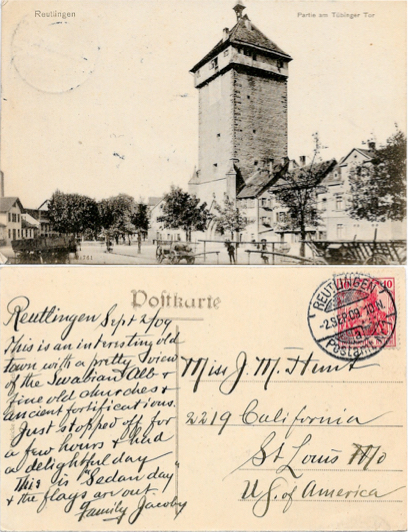 Reutlingen
Partie am Tübinger Tor
Postkarte
Reutlingen Sept 2/09
This is an interesting old
town with a pretty view
of the Swabian Alb &
fine old churches &
ancient fortifications.
Just stopped off for
a few hours & had
a delightful day
This is "Sedan day"
& the flags are out.
Family Jacoby
REUTLINGEN
-2.SEP.09. 10.N.
Postamt
10
Miss J. M. Hunt
2219 California
St Louis Mo
U.S. of America